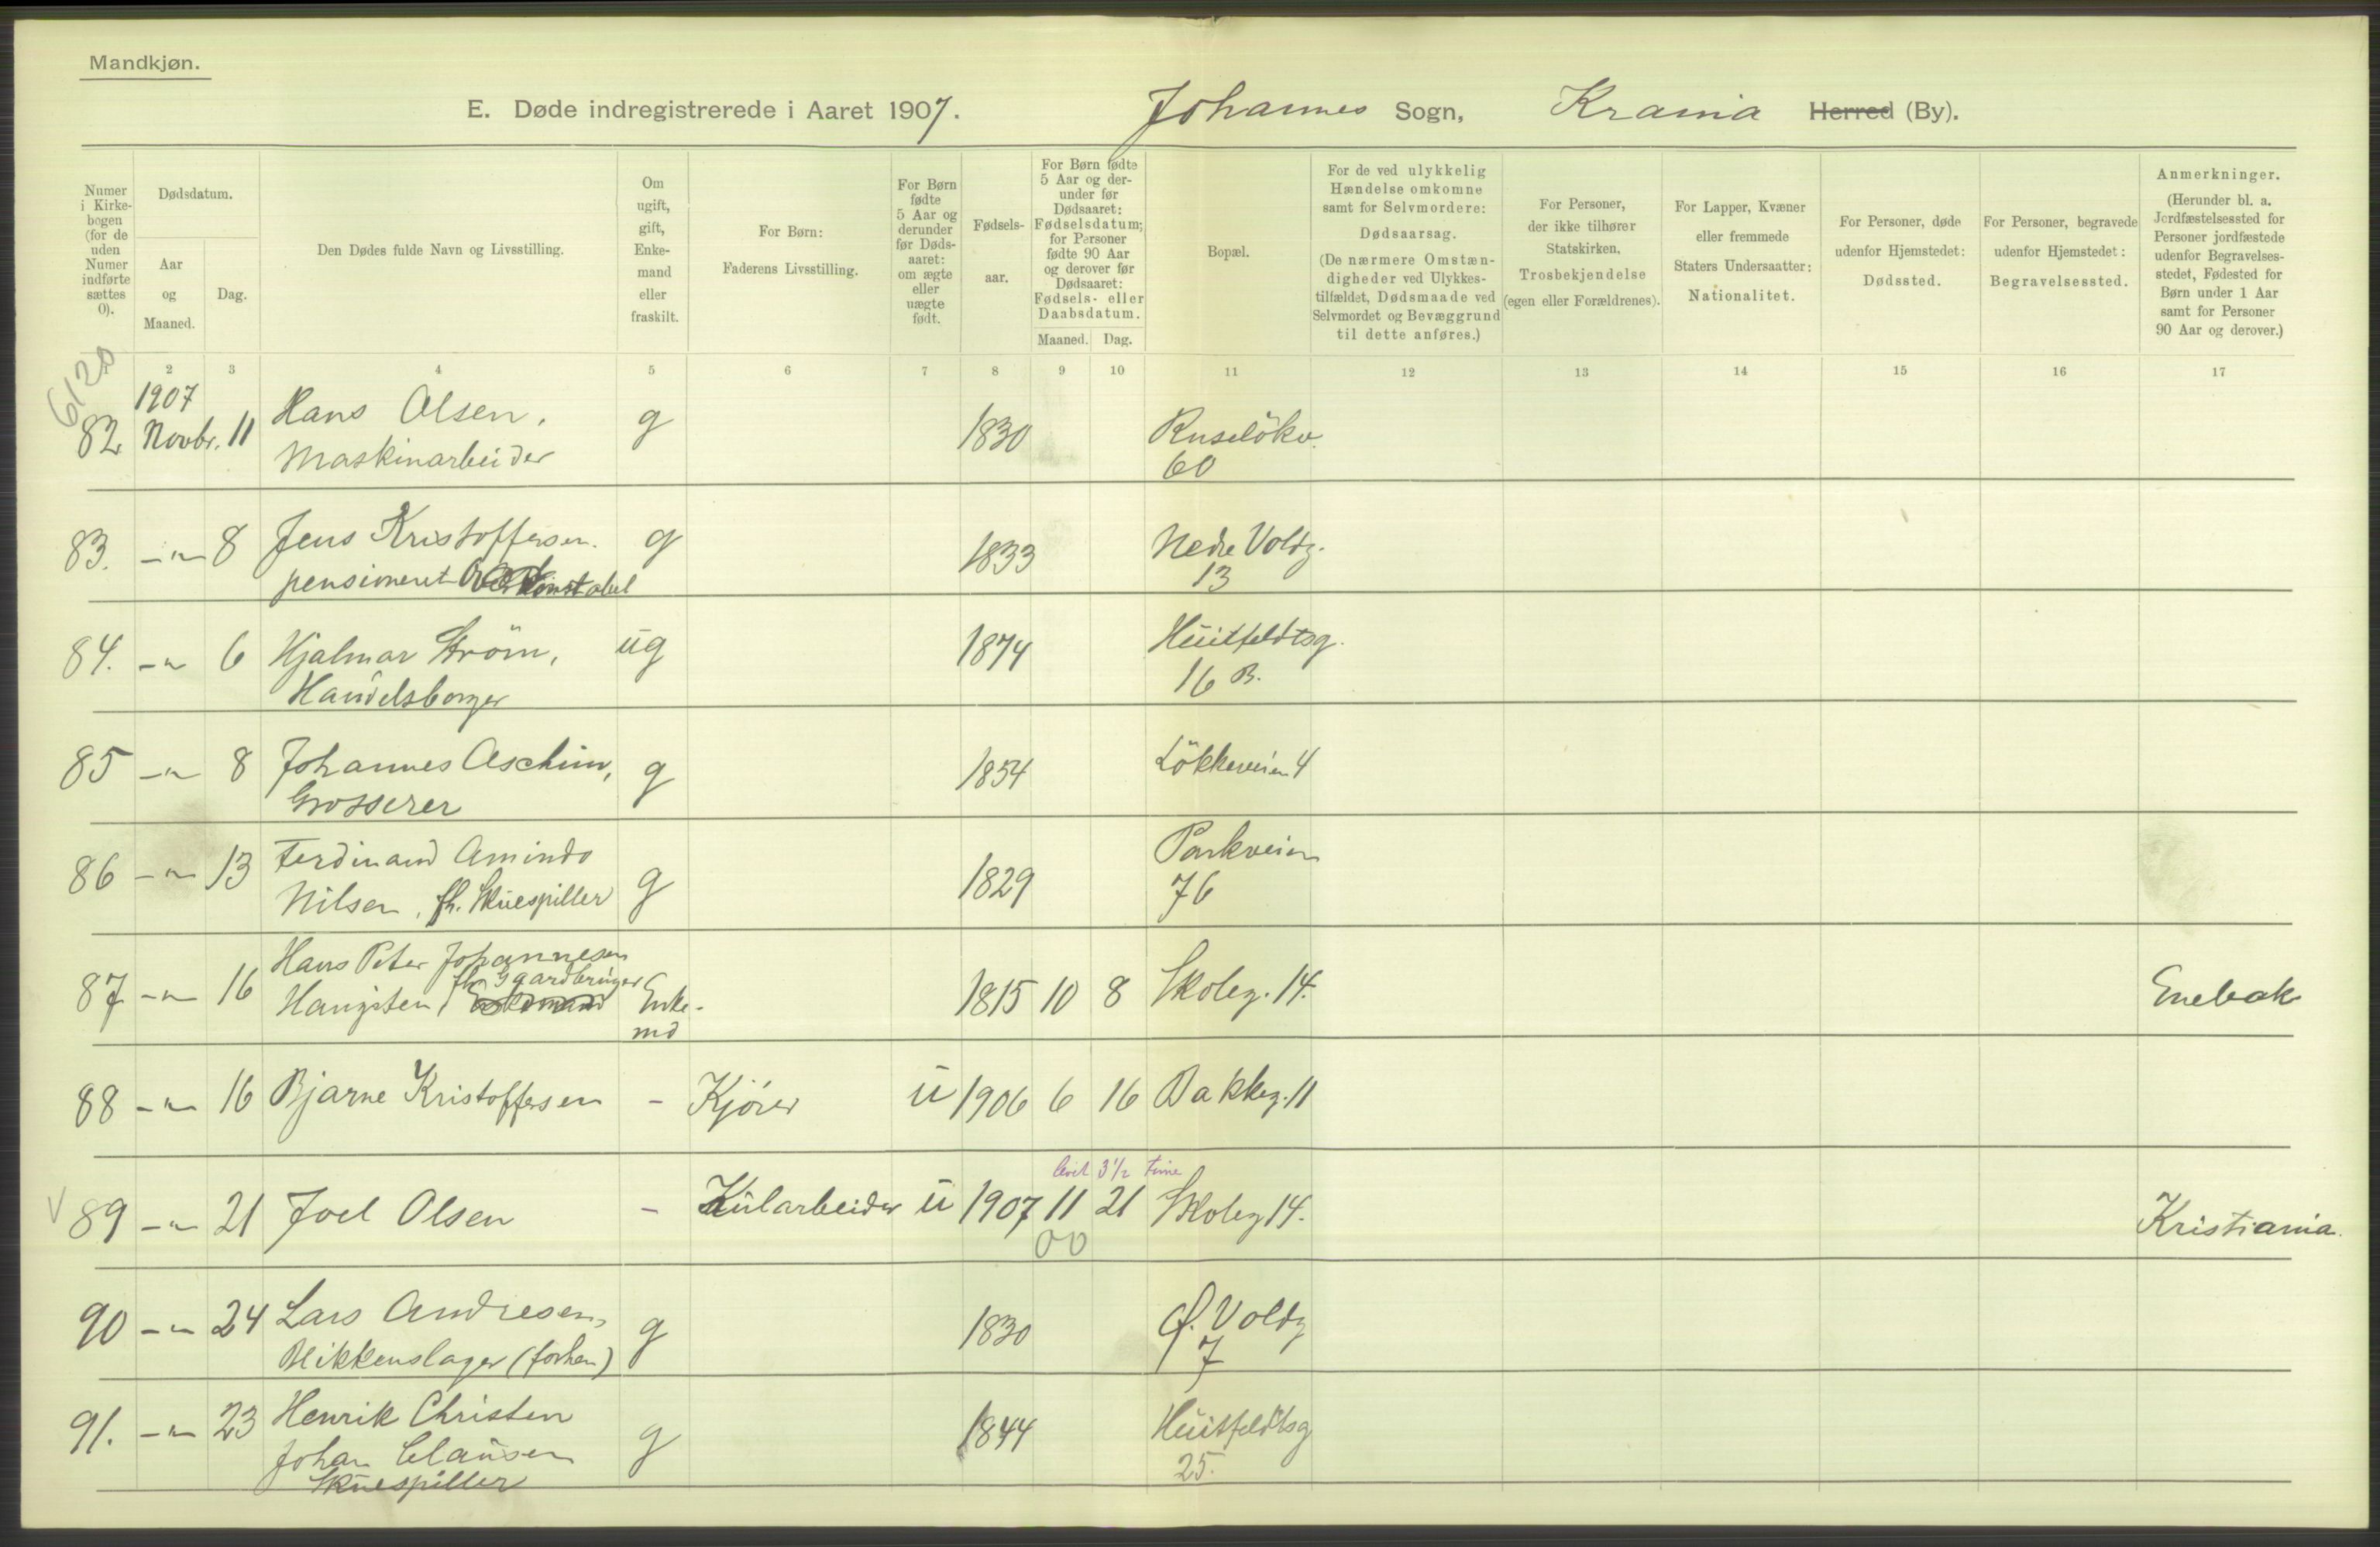 Mandkjøn.
E. Døde indregistrerede i Aaret 1907. Johannes Sogn, Krania Herred (By).
Numer
i Kirke-
bogen
(for de
uden
Numer
indførte
sættes
0).
Dødsdatum.
Aar
og
Maaned.
Dag.
Den Dødes fulde Navn og Livsstilling.
Om
ugift,
gift,
Enke-
mand
eller
fraskilt.
For Børn:
Faderens Livsstilling.
For Børn
fødte
5 Aar og
derunder
før Døds-
aaret:
om ægte
eller
uægte
født.
Fødsels-
aar.
For Børn fødte
5 Aar og der-
under før
Dødsaaret:
Fødselsdatum;
for Personer
fødte 90 Aar
og derover før
Dødsaaret:
Fødsels- eller
Daabsdatum.
Maaned. Dag.
Bopæl.
For de ved ulykkelig
Hændelse omkomne
samt for Selvmordere:
Dødsaarsag.
(De nærmere Omstæn-
digheder ved Ulykkes-
tilfældet, Dødsmaade ved
Selvmordet og Bevæggrund
til dette anføres.)
For Personer,
der ikke tilhører
Statskirken,
Trosbekjendelse
(egen eller Forældrenes).
For Lapper, Kvæner
eller fremmede
Staters Undersaatter:
Nationalitet.
For Personer, døde
udenfor Hjemstedet:
Dødssted.
For Personer, begravede
udenfor Hjemstedet:
Begravelsessted.
Anmerkninger.
(Herunder bl. a.
Jordfæstelsessted for
Personer jordfæstede
udenfor Begravelses-
stedet, Fødested for
Børn under 1 Aar
samt for Personer
90 Aar og derover.)
2 3 4 5 6 7 8 9 10 11 12 13 14 15 16 17
6120
1907
82. Novbr. 11 Hans Olsen, g 1830 Ruseløkv.
Maskinarbeider 60
83. -"- 8 Jens Kristoffersen. g 1833 Nedre Voldg.
pensioneret konstabel 13
84. -"- 6 Hjalmar Strøm, ug 1874 Huitfeldtsg.
Handelsborger 16 B.
85 -"- 8 Johannes Aschim, g 1854 Løkkeveien 4
Grosserer
86 -"- 13 Ferdinand Amindo g 1829 Parkveien
Nilsen, fh. Skuespiller 76
87 -"- 16 Hans Peter Johannesen
fh. Gaardbruger
Hangsten, Enke- 1815 10 8 Skoleg. 14. Enebak
md
88 -"- 16 Bjarne Kristoffersen - Kjører u 1906 6 16 Bakkeg. 11
levet 3 1/2 time
V 89 -"- 21 Joel Olsen - Kularbeider u 1907 11 21 Skoleg 14. Kristiania.
00
90 -"- 24 Lars Andresen, g 1830 Ø. Voldg
Blikkenslager (forhen) 7
91. -"- 23 Henrik Christen g 1844 Huitfeldtsg
Johan Clausen 25.
Skuespiller